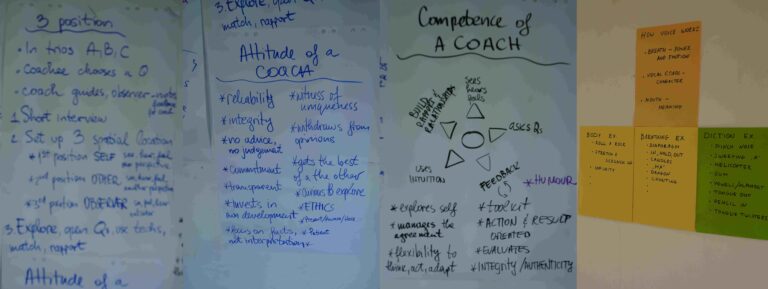 3 position
• In trios A, B, C
• Coachee chooses a Q
• coach guides, observer - notes
feedback
for coach
1. Short interview
2. Set up 3 spatial location
*1st position SELF
*2nd position OTHER
another perspective
*3rd position OBSERVER
3. Explore, open Qs, use techs,
match, rapport
Attitude of a
3. Explore, open Qs
match, rapport
Attitude of a
COACH
*reliability
*integrity
*no advice,
no judgement
*Commitment
*transparent
*Invests in
own development
*focus on facts,
not interpretations
*witness of
uniqueness
*withdraws from
opinions
*gets the best
of a the other
*Curious & explore
*ETHICS
*Patient
Competence of
A COACH
SEES
hears
feels
BUILDS
RAPPORT &
RELATIONSHIPS
ASKS Qs
USES
INTUITION
FEEDBACK
*HUMOUR
*explores self
*manages the
agreement
*flexibility to
think, act, adapt
*toolkit
*ACTION & RESULT
ORIENTED
*EVALUATES
*INTEGRITY/AUTHENTICITY
HOW VOICE WORKS
• BREATH - POWER
AND EMOTION
• VOCAL CORDS -
CHARACTER
• MOUTH -
MEANING
BODY EX
• ROLL A ROCK
• STRETCH &
BREATHING EX
• DIAPHRAGM
• IN, HOLD, OUT
• CANDLES
• "HA"
• DRAGON
• COUNTING
DICTION EX
• PINCH NOSE
• HELICOPTER
• GUM
• VOWELS/ALPHABET
• TONGUE OUT
• PENCIL IN
• TONGUE TWISTERS